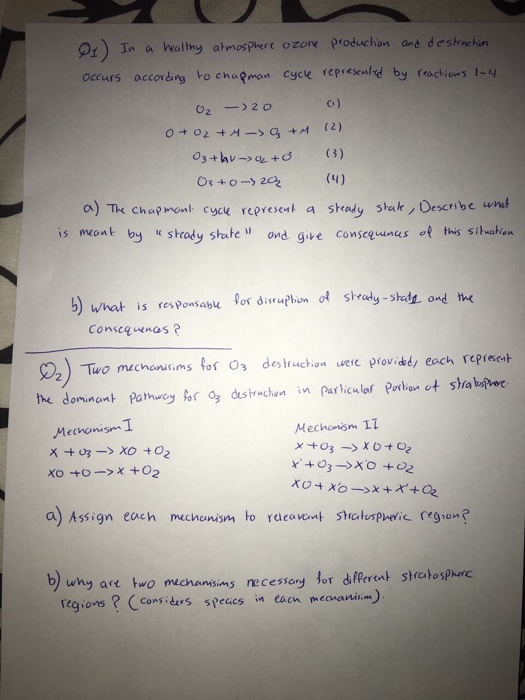 Q1) In a healthy atmosphere ozone production and destruction
occurs according to chapman cycle represented by reactions 1-4
O2 —> 2O (1)
O + O2 + M —> O3 + M (2)
O3 + hv —> O2 + O (3)
O3 + O —> 2O2 (4)
a) The chapmont cycle represent a steady state, Describe what
is meant by "steady state" and give consequences of this situation
b) what is responsable for disruption of steady-state and the
consequences?
Q2) Two mechanisims for O3 destruction were provided, each represent
the dominant Pathway for O3 destruction in particular portion of stratosphere
Mechanism I
X + O3 —> XO + O2
XO + O —> X + O2
Mechanism II
X + O3 —> XO + O2
X' + O3 —> X'O + O2
XO + X'O —> X + X' + O2
a) Assign each mechanism to releavant stratospheric region?
b) why are two mechanisims necessary for different stratosphere
regions? (considers species in each mechanisim).